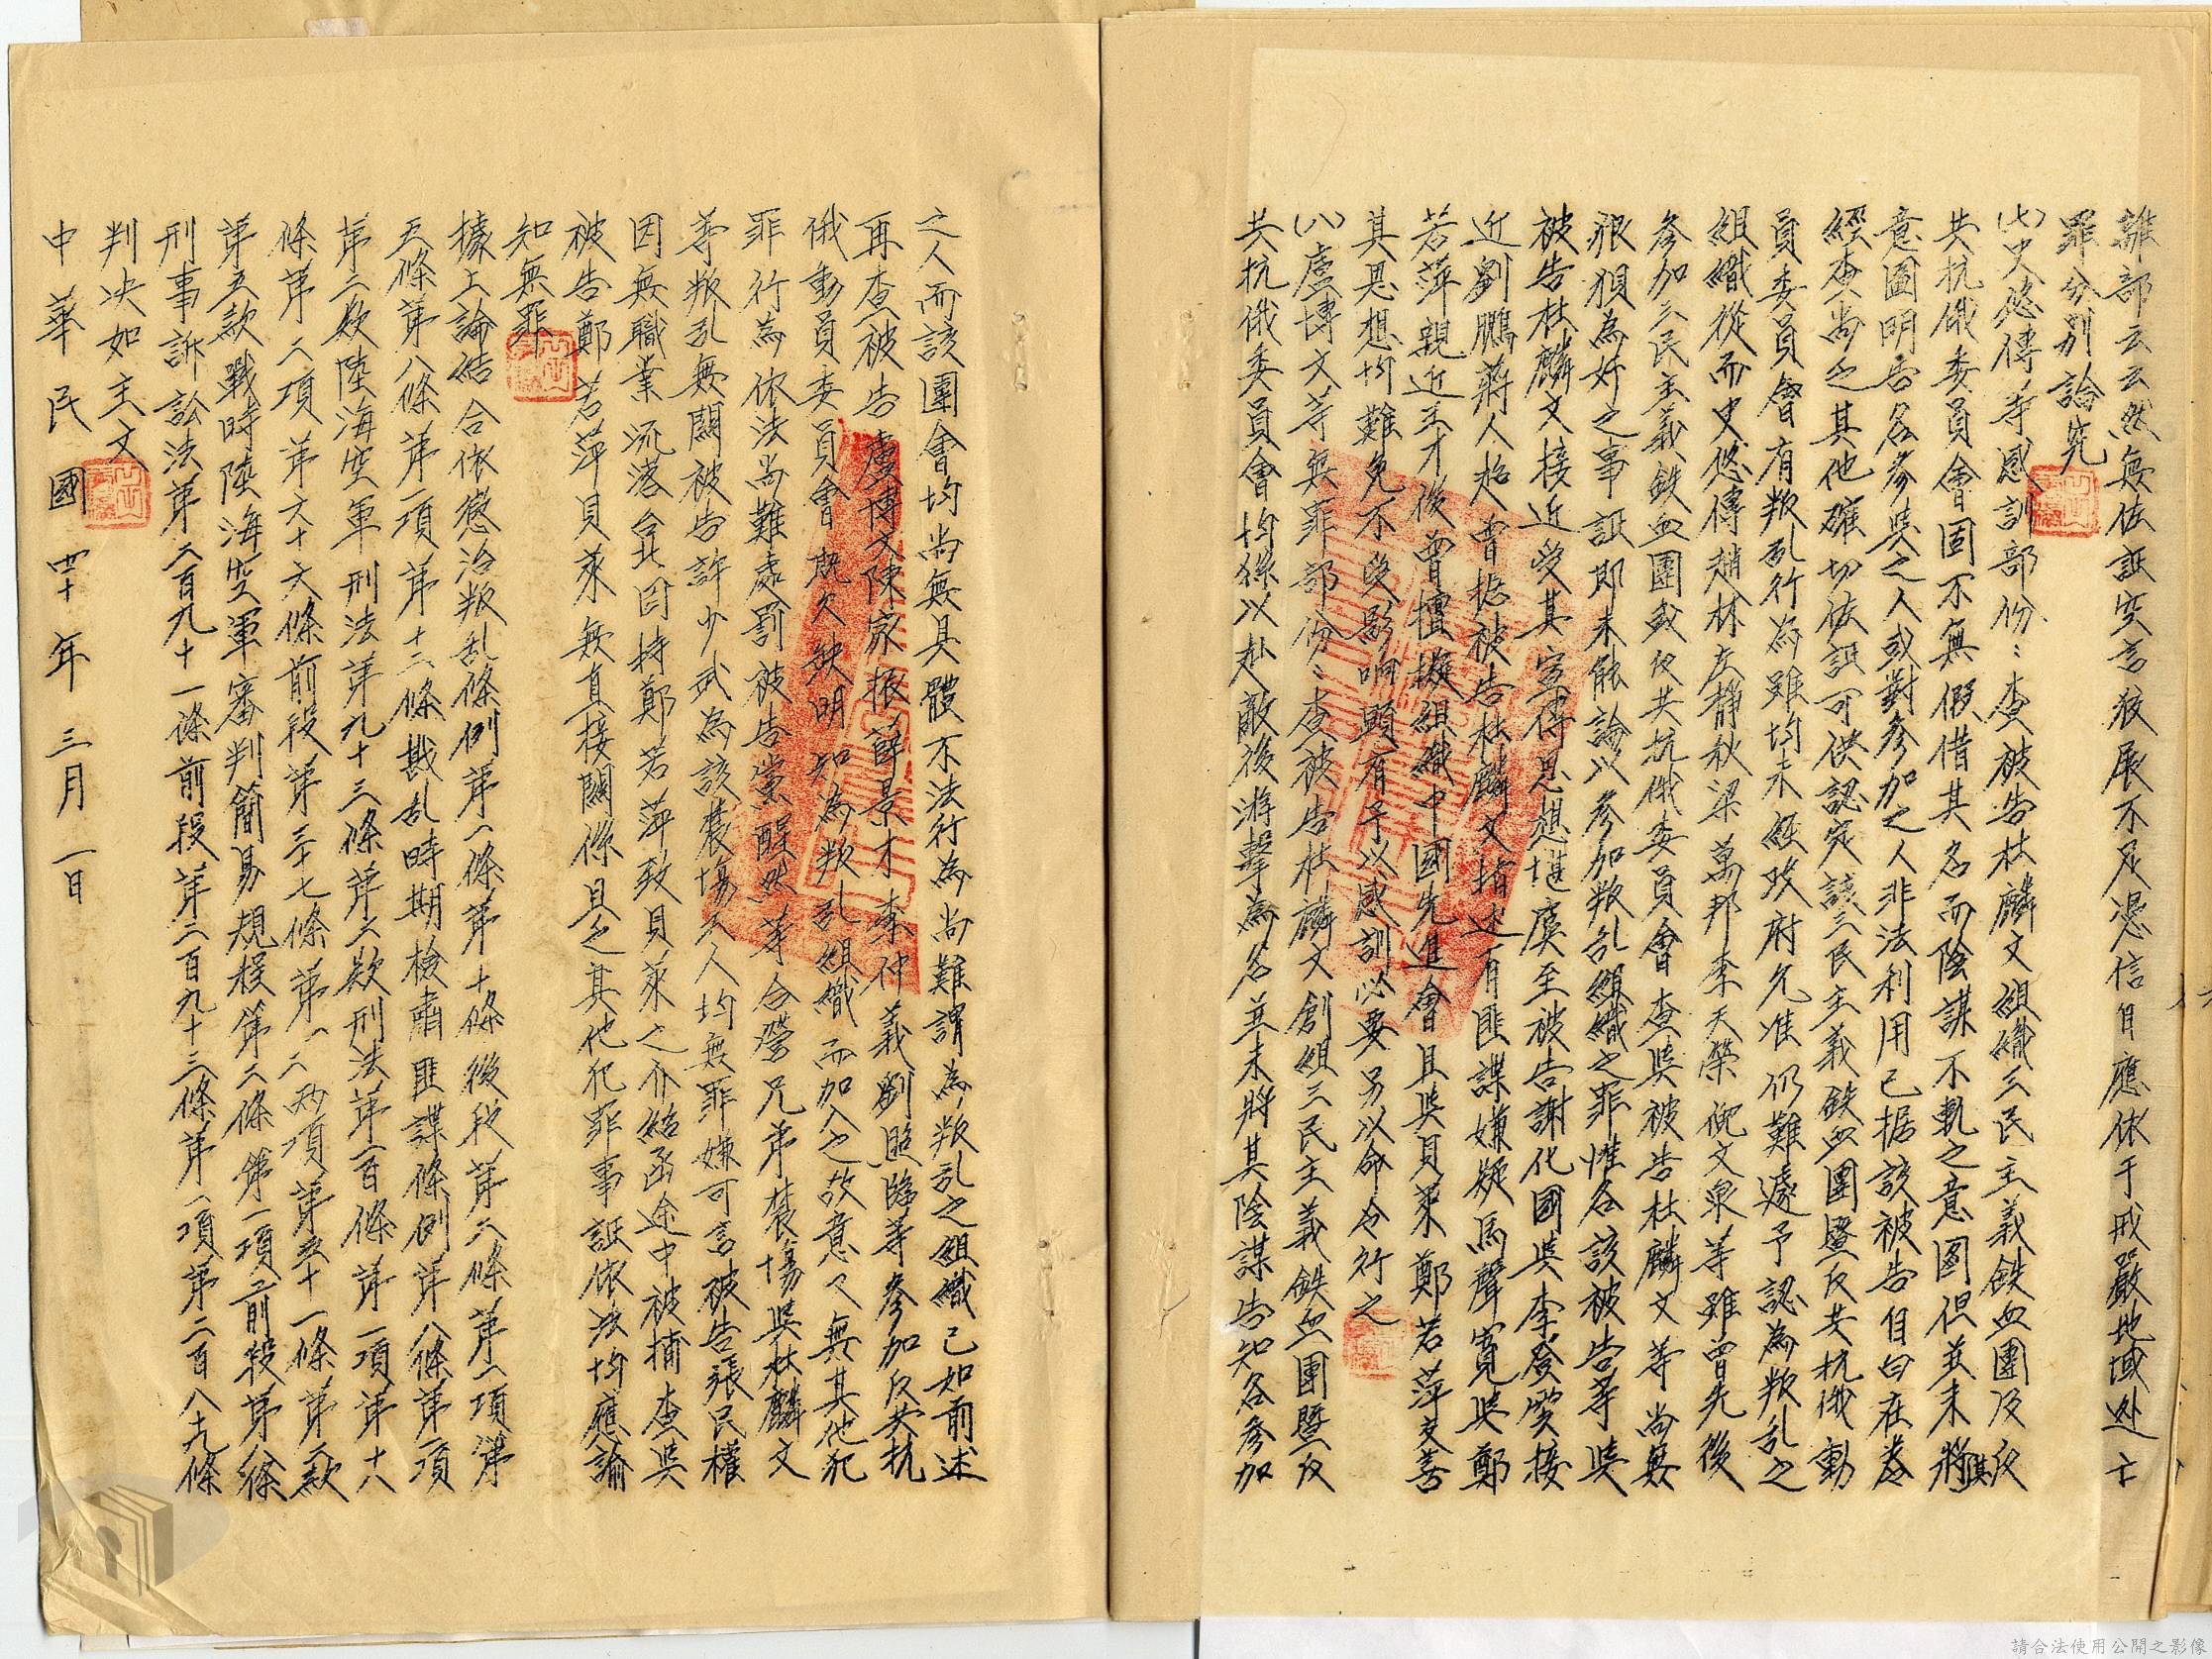 離部云云然無佐証空言狡展不足憑信自應依于戒嚴地域逃亡
罪分別論究
(七)史悠傳等感訓部份：查被告杜麟文組織三民主義鉄血團及反
共抗俄委員會固不無假借其名而陰謀不軌之意圖但並未將其
意圖明告各參與之人或對參加之人非法利用已据該被告自白在卷
經查尚乏其他確切佐証可供認定該三民主義鉄血團暨反共抗俄動
員委員會有叛乱行為雖均未經政府允准仍難遽予認為叛乱之
組織從而史悠傳趙林左靜秋梁萬邦李天榮倪文泉等雖曾先後
參加三民主義鉄血團或反共抗俄委員會查與被告杜麟文等尚無
狼狽為奸之事証即未能論以參加叛乱組織之罪惟各該被告等與
被告杜麟文接近受其宣傳思想堪虞至被告謝化國與李登瑩接
近劉鵬蔣人格曾據被告杜麟文指述有匪諜嫌疑馬聲寬與鄭
若萍親近王才後曾擅擬組織中國先進會且與貝萊鄭若萍交善
其思想均難免不受影响顯有予以感訓必要另以命令行之
(八)盧博文等無罪部份：查被告杜麟文創組三民主義鉄血團暨反
共抗俄委員會均係以赴敵後游擊為名並未將其陰謀告知各參加
之人而該團會均尚無具體不法行為尚難謂為叛乱之組織已如前述
再查被告盧博文陳家振薛景才秦仲義劉照臨等參加反共抗
俄動員委員會既欠缺明知為叛乱組織而加入之故意又無其他犯
罪行為依法尚難處罰被告棠醒然等合營兄弟農場與杜麟文
等叛乱無關被告許少武為該農場工人均無罪嫌可言被告張民權
因無職業流落台北因持鄭若萍致貝萊之介紹函途中被捕查與
被告鄭若萍貝萊無直接關係且乏其他犯罪事証依法均應諭
知無罪
據上論結合依懲治叛乱條例第一條第十條後段第二條第一項第
五條第八條第一項第十二條戡乱時期檢肅匪諜條例第八條第一項
第二款陸海空軍刑法第九十三條第六款刑法第一百條第一項第十八
條第二項第六十六條前段第三十七條第一二兩項第五十一條第二款
第五款戰時陸海空軍審判簡易規程第二條第一項前段第八條
刑事訴訟法第二百九十一條前段第二百九十三條第一項第二百八十九條
判决如主文
中華民國四十年三月一日
請合法使用公開之影像